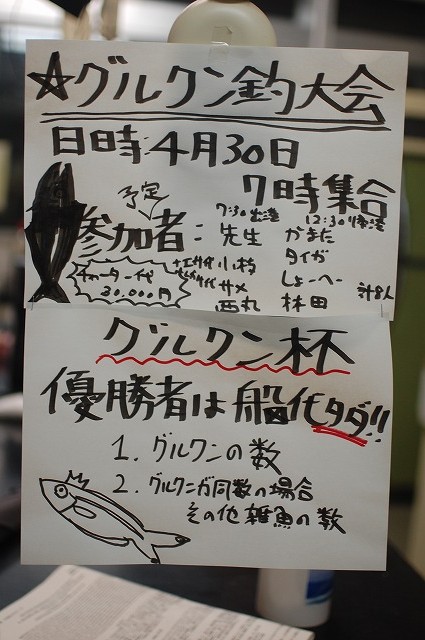 ☆グルクン釣大会
日時:4月30日
7時集合
7:30出港 12:30帰港
予定
参加者: 先生 かまだ
小村 タイガ
サメ しょーへー
西丸 林田 計8人
チャーター代
30.000円
グルクン杯
優勝者は船代タダ!!
1. グルクンの数
2. グルクンが同数の場合
その他雑魚の数